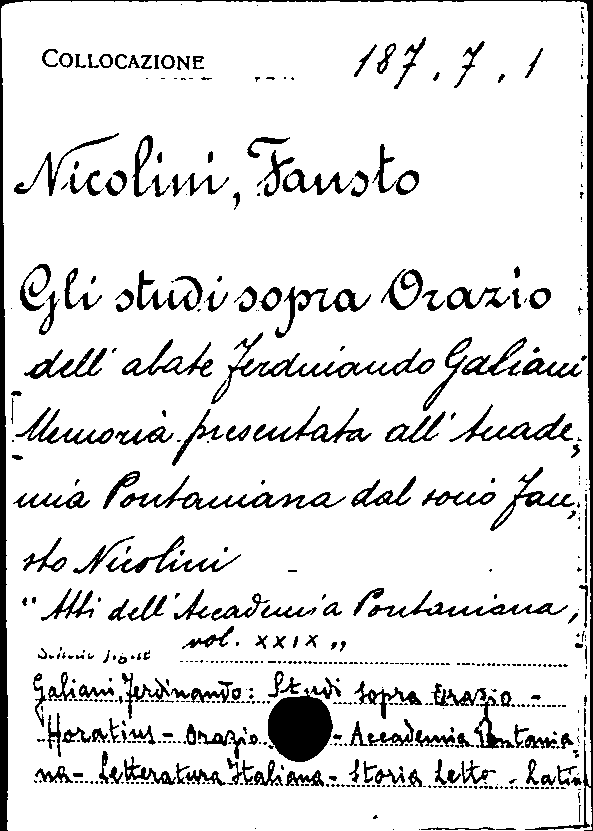 COLLOCAZIONE 187.7.1
Nicolini, Fausto
Gli studi sopra Orazio
dell'abate Ferdinando Galiani
[Memoria presentata all'Accade,
mia Pontaniana dal socio Fau,
sto Nicolini
"Atti dell'Accademia Pontaniana,
vol. XXIX"
Galiani, Ferdinando: Studi sopra Orazio -
Horatius - Orazio - Accademia Pontania-
na - Letteratura Italiana - Storia Lett. - Latin